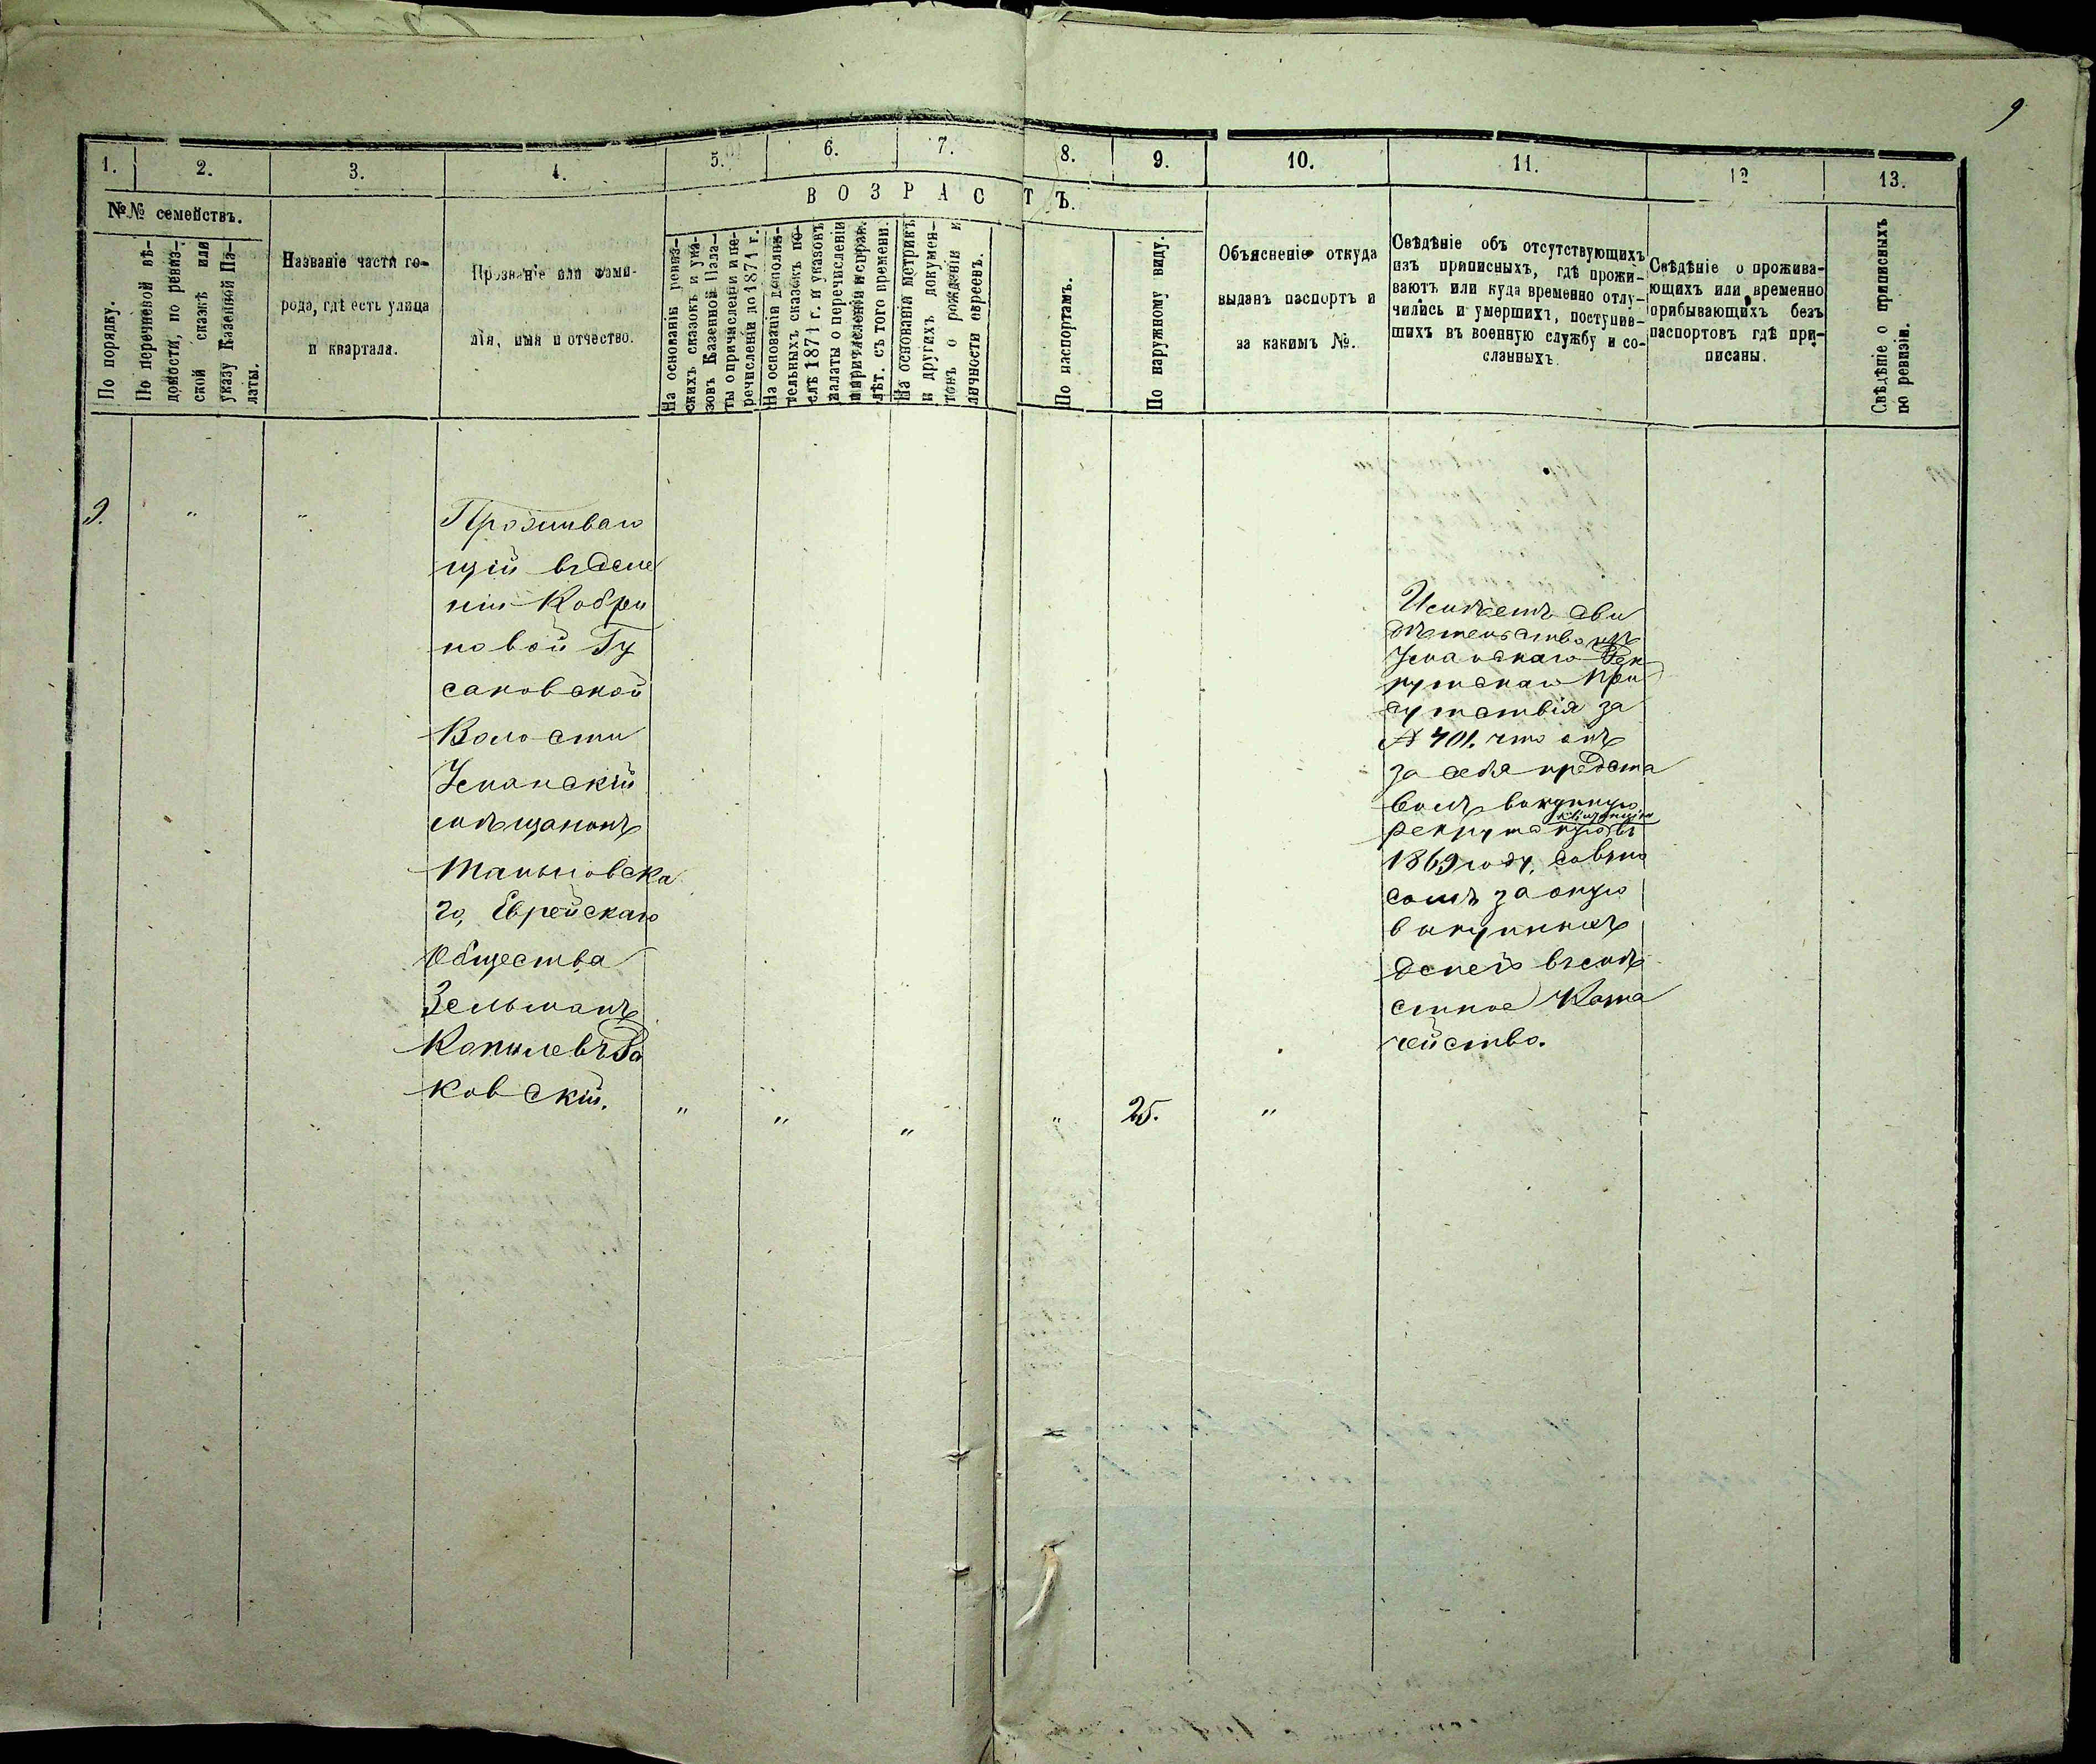 9
1. 2. 3. 4. 5. 6. 7. 8. 9. 10. 11. 12 13.
№№ семействъ.
По порядку.
По перечневой вѣ-
домости, по ревиз-
ской сказкѣ или
указу Казенной Па-
латы.
Названіе части го-
рода, гдѣ есть улица
и квартала.
Прозваніе или фами-
лія, имя и отчество.
ВОЗРАСТЪ.
На основаніи ревиз-
скихъ сказокъ и ука-
зовъ Казенной Пала-
ты о причисленіи и пе-
речисленіи до 1871 г.
На основаніи дополни-
тельныхъ сказокъ по-
слѣ 1871 г. и указовъ
палаты о перечисленіи
и причисленіи и справ.
лѣт. съ того времени.
На основаніи метрикъ
и другихъ докумен-
товъ о рожденіи и
личности евреевъ.
По паспортамъ.
По наружному виду.
Объясненіе откуда
выданъ паспортъ и
за какимъ №.
Свѣдѣніе объ отсутствующихъ
изъ приписныхъ, гдѣ прожи-
ваютъ или куда временно отлу-
чились и умершихъ, поступив-
шихъ въ военную службу и со-
сланныхъ
Свѣдѣніе о прожива-
ющихъ или временно
прибывающихъ безъ
паспортовъ гдѣ при-
писаны.
Свѣдѣніе о приписныхъ
по ревизіи.
9. " "
Проживаю
щій въ селе
ніи Кобри
новой Гу
саковской
Волости
Уманскій
мѣщанинъ
Тальновска
го, Еврейскаго
Общества
Зельманъ
Копылевъ Ра
ковскій.
" " " " 25. "
Имѣетъ сви
дѣтельство изъ
Уманскаго Рек
рутскаго При
сутствія за
№ 701. что онъ
за себя предста
вилъ выкупную
квитанцію
рекрутскую въ
1869 году, со взно
сомъ за оную
выкупныхъ
денегъ въ мѣ
стное Казна
чейство.